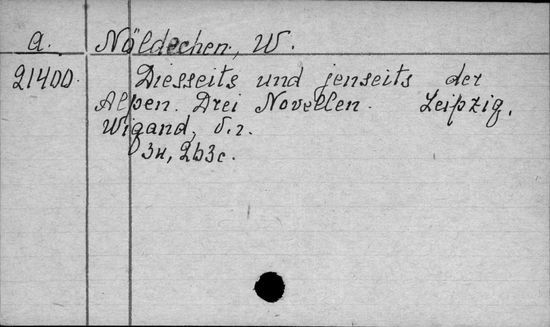 a. Nöldechen, W.
21400. Diesseits und jenseits der
Alpen. Drei Novellen. Leipzig,
Wigand, S.z.
34, 263c.